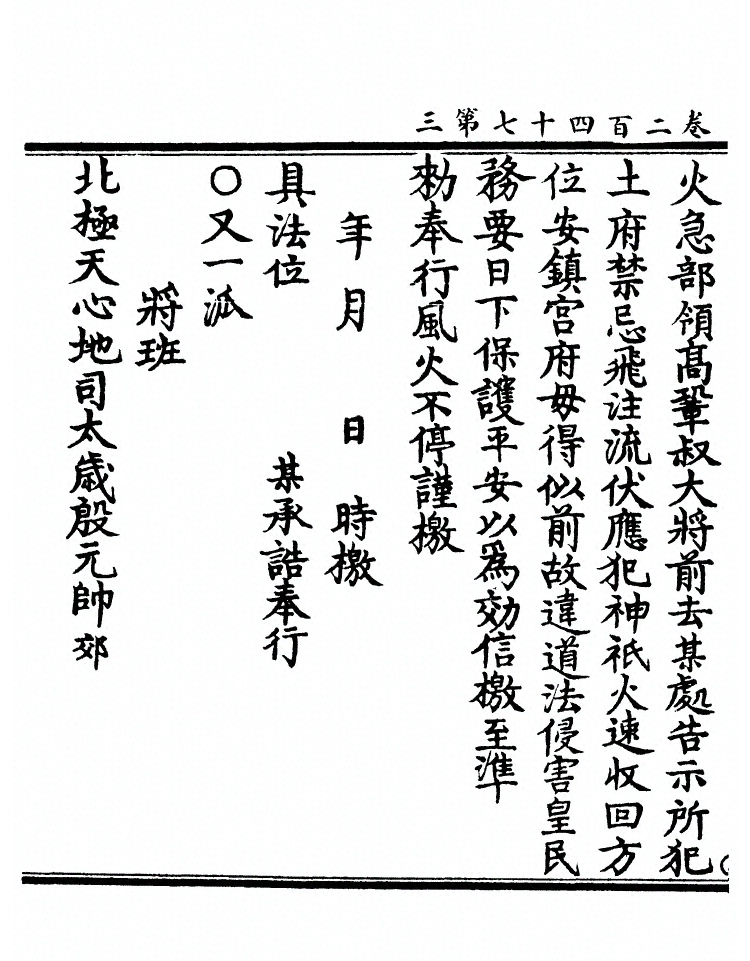 卷二百四十七第三
火急部領高鞏叔大將前去某處告示所犯
土府禁忌飛注流伏應犯神祇火速收回方
位安鎮宮府毋得似前故違道法侵害皇民
務要日下保護平安以為効信檄至準
勑奉行風火不停謹檄
年月　日　時檄
具法位　某承誥奉行
○又一派
將班
北極天心地司太歲殷元帥郊